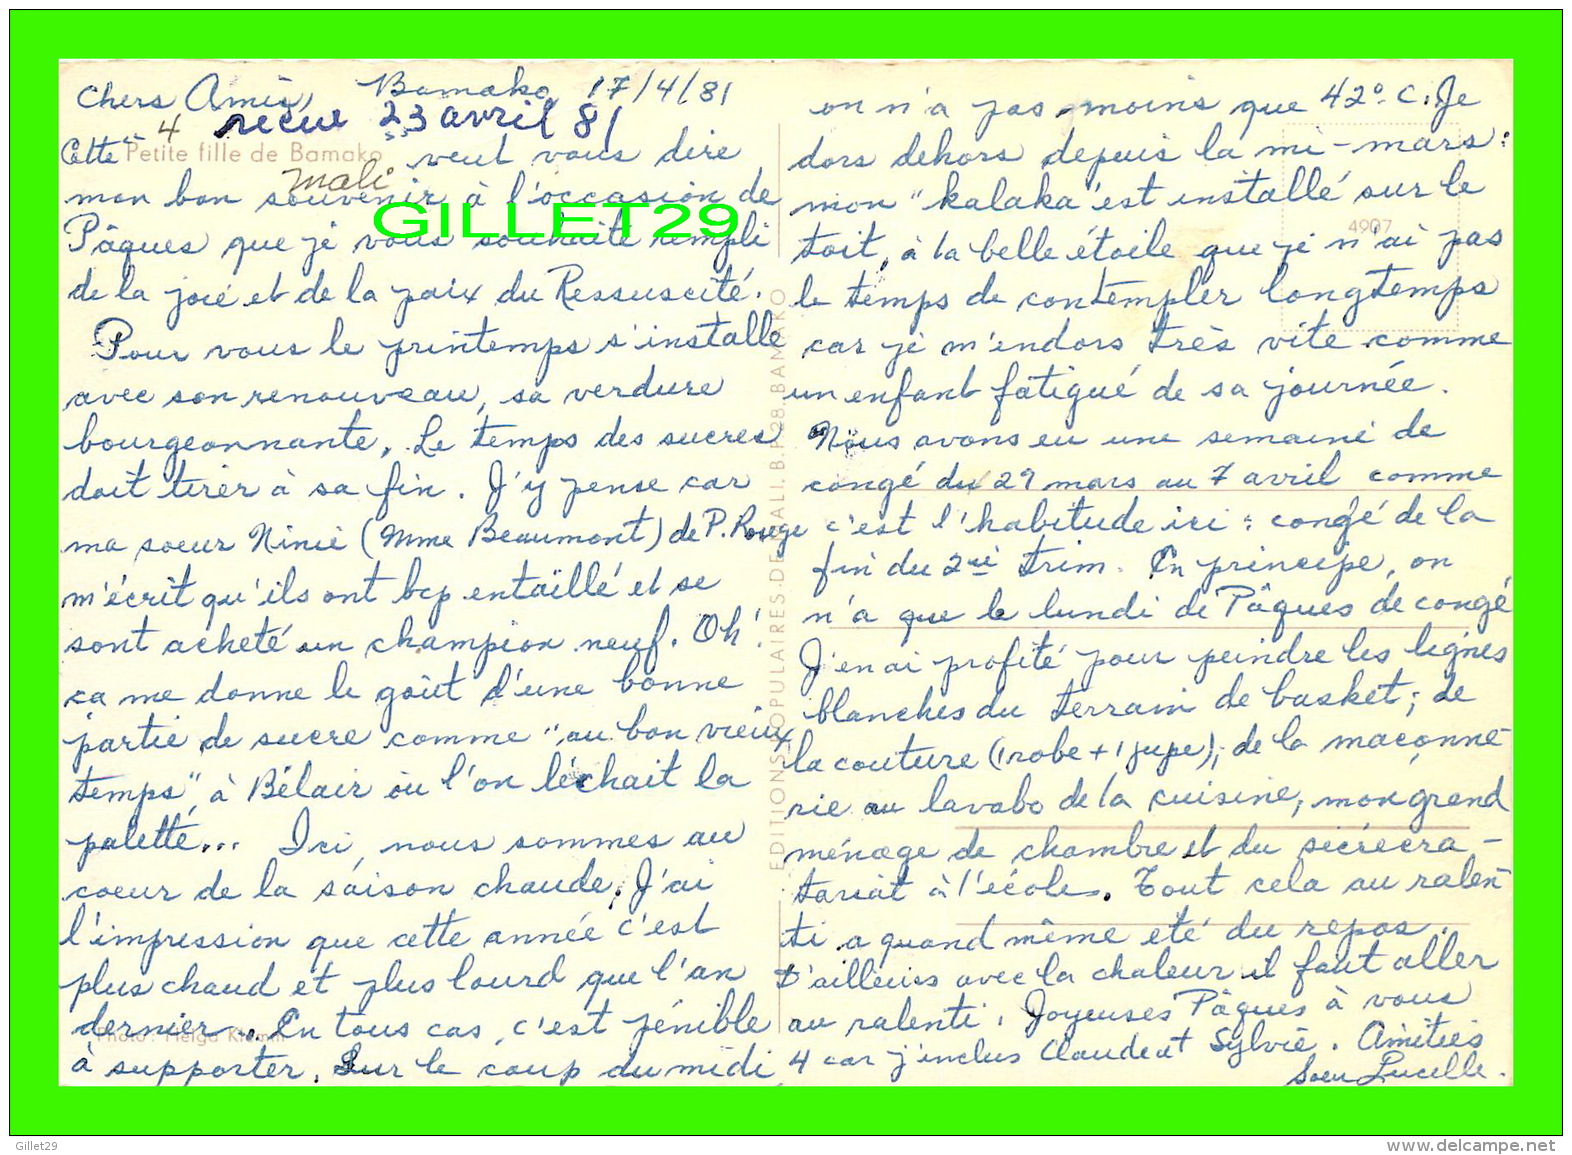 Chers Amis, Bamako 17/4/81
4 recue 23 avril 81
Cette Petite fille de Bamako veut vous dire
Mali
mon bon souvenir à l'occasion de
GILLET29
Pâques que je vous souhaite rempli
de la joie et de la paix du Ressuscité.
Pour vous le printemps s'installe
avec son renouveau, sa verdure
bourgeonnante. Le temps des sucres
doit tirer à sa fin. J'y pense car
ma soeur Ninie (Mme Beaumont) de P. Rouge
m'écrit qu'ils ont bcp entaillé et se
sont acheté un champion neuf. Oh!
ça me donne le goût d'une bonne
partie de sucre comme "au bon vieux
temps", à Bélair où l'on léchait la
palette... Ici, nous sommes au
coeur de la saison chaude. J'ai
l'impression que cette année c'est
plus chaud et plus lourd que l'an
dernier... En tous cas, c'est pénible
Photo : Helga
à supporter. Sur le coup du midi
EDITIONS POPULAIRES DE MALI. B.P. 28. BAMAKO
on n'a pas moins que 42° C. Je
dors dehors depuis la mi-mars:
mon "kalaka" est installé sur le
4907
toit, à la belle étoile que je n'ai pas
le temps de contempler longtemps
car je m'endors très vite comme
un enfant fatigué de sa journée.
Nous avons eu une semaine de
congé du 29 mars au 7 avril comme
c'est l'habitude ici: congé de la
fin du 2ue trim. En principe, on
n'a que le lundi de Pâques de congé
J'en ai profité pour peindre les lignes
blanches du terrain de basket; de
la couture (1 robe + 1 jupe); de la maçonne-
rie au lavabo de la cuisine, mon grand
ménage de chambre et du sécrécra-
tariat à l'école. Tout cela au ralen-
ti a quand même été du repos.
D'ailleurs avec la chaleur il faut aller
au ralenti. Joyeuses Pâques à vous
4 car j'inclus Claude et Sylvie. Amitiés
Soeur Lucelle.
Gillet29
www.delcampe.net